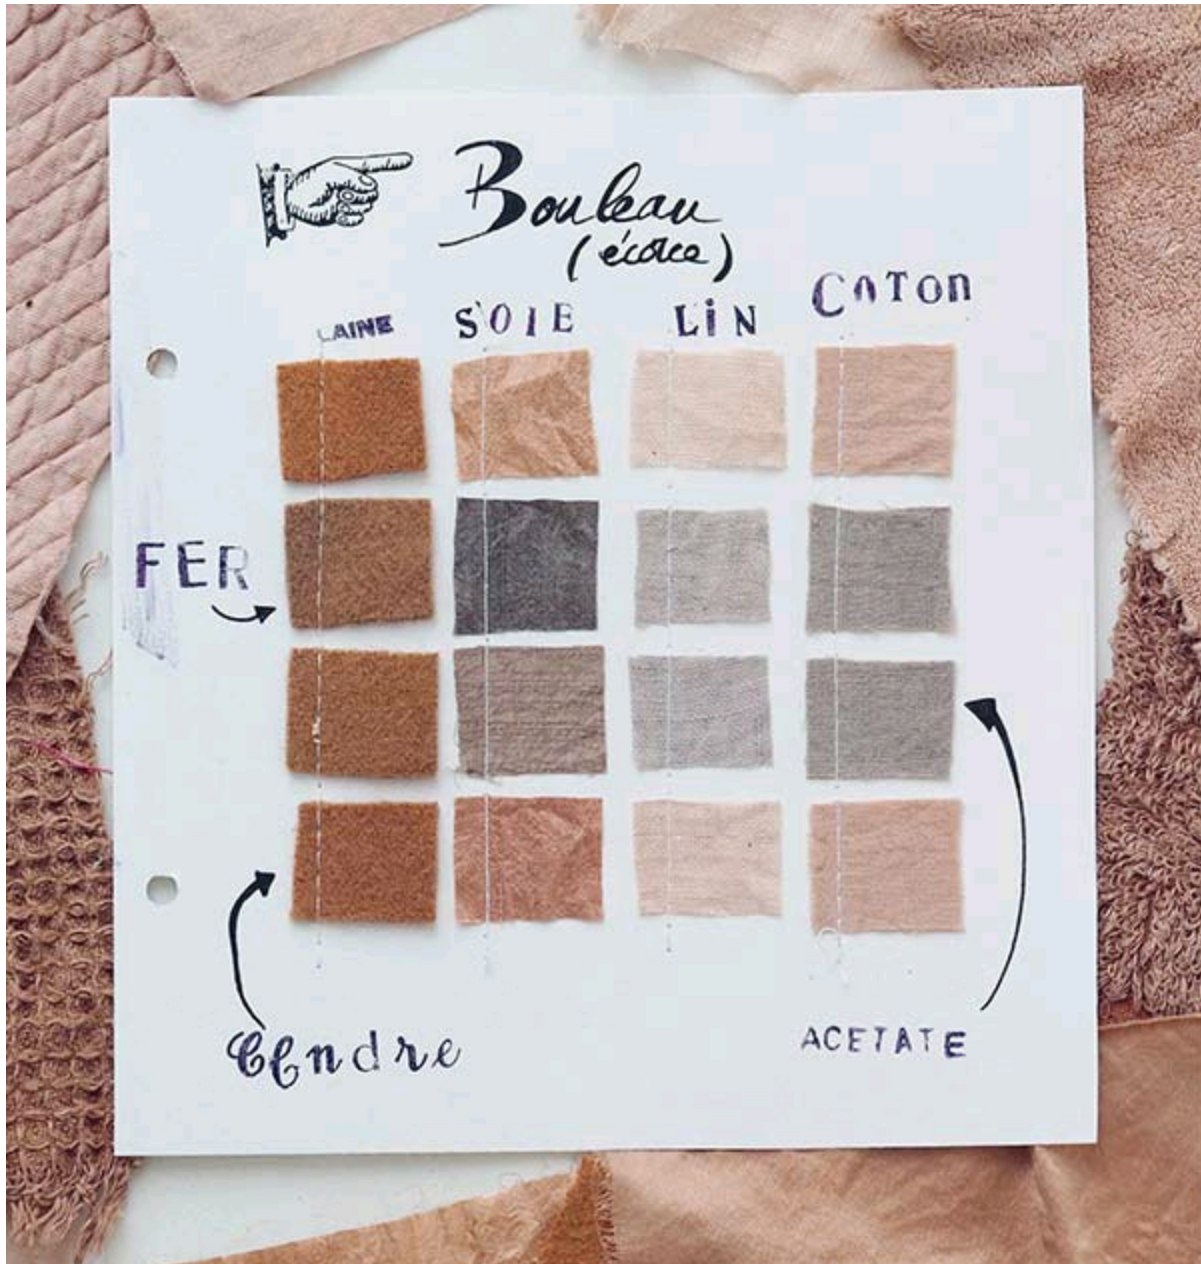 Bouleau
(écorce)
LAINE SOIE LiN CATON
FER
CEndre
ACETATE